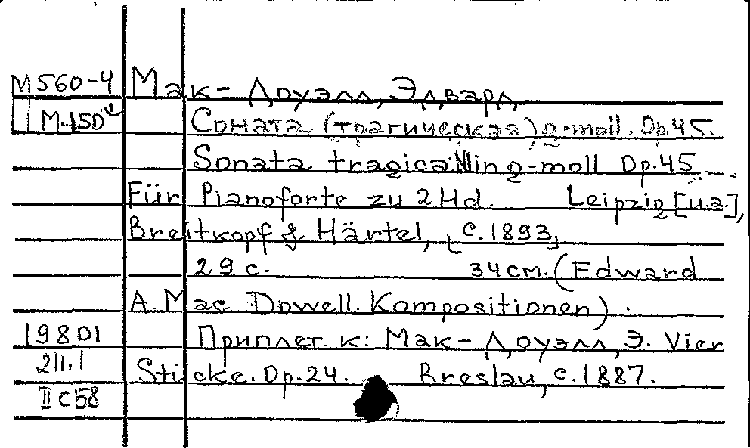 М560-4 Мак-Доуэлл, Эдвард
М-150 Соната (трагическая) g-moll. Op.45.
Sonata tragica in g-moll Op.45
Für Pianoforte zu 2 Hd. Leipzig [u.a],
Breitkopf & Härtel, [c.1893]
29 с. 34 см. (Edward
A. Mac Dowell. Kompositionen).
19801 Приплет. к: Мак-Доуэлл, Э. Vier
211.1 Stücke. Op.24. Breslau, c.1887.
II c 58